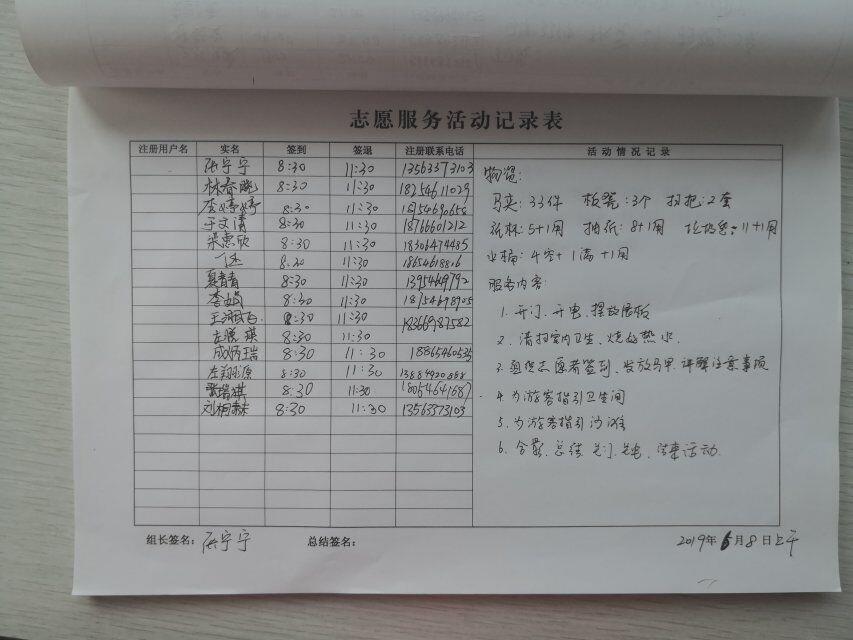 志愿服务活动记录表
注册用户名 实名 签到 签退 注册联系电话 活动情况记录
张宇宁 8:30 11:30 13563373103
林春晓 8:30 11:30 18254611029
李婷婷 8:30 11:30 18754690658
于文清 8:30 11:30 18766601212
梁惠欣 8:30 11:30 18306474485
8:30 11:30 18654618816
夏青青 8:30 11:30
李娟 8:30 11:30 18754698905
8:30 11:30 18366987582
左晓琪 8:30 11:30
8:30 11:30
8:30 11:30
8:30 11:30 18054641687
8:30 11:30 13563373103
物资:
马夹:33件 板凳:3个 扫把:2套
纸杯:5+1用 抽纸:8+1用 垃圾袋:11+1用
水桶:4空+1满+1用
服务内容:
1. 开门、开电、摆放展板
2. 清扫室内卫生、烧好热水
3. 组织志愿者签到、发放马甲、讲解注意事项
4. 为游客指引卫生间
5. 为游客指引沙滩
6. 合影、总结、关门、关电、结束活动.
组长签名: 张宇宁 总结签名: 2019年6月8日上午